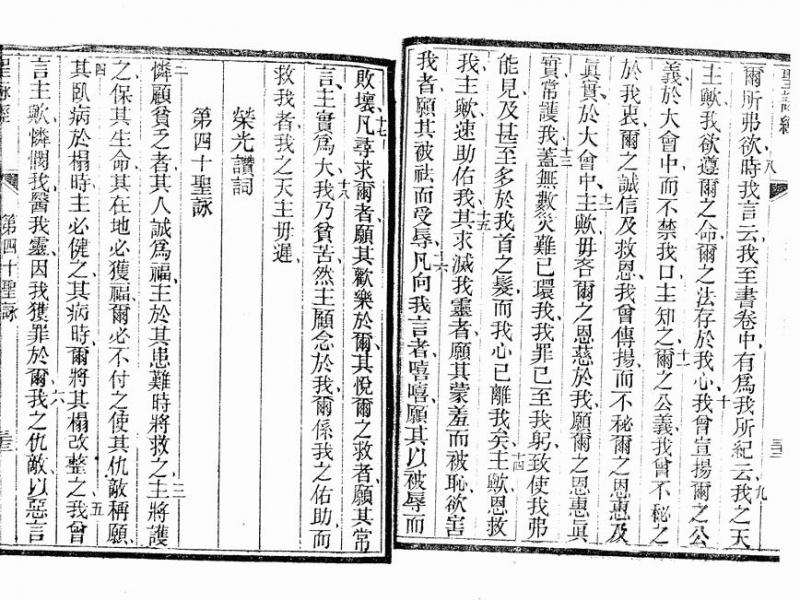 聖詠經
三十二
爾所弗欲時我言云我至書卷中有爲我所紀云我之天
主歟我欲遵爾之命爾之法存於我心我曾宣揚爾之公
義於大會中而不禁我口主知之爾之公義我曾不秘之
於我衷爾之誠信及救恩我曾傳揚而不秘爾之恩惠及
眞實於大會中主歟毋吝爾之恩慈於我願爾之恩惠眞
實常護我蓋無數災難已環我我罪已至我躬致使我弗
能見及甚至多於我首之髮而我心已離我矣主歟恩救
我主歟速助佑我其求滅我靈者願其蒙羞而被恥欲害
我者願其被祛而受辱凡向我言者嘻嘻願其以被辱而
敗壞凡尋求爾者願其歡樂於爾其悅爾之救者願其常
言主實爲大我乃貧苦然主願念於我爾係我之佑助而
救我者我之天主毋遲
榮光讚詞
第四十聖詠
憐顧貧乏者其人誠爲福主於其患難時將救之主將護
之保其生命其在地必獲福爾必不付之使其仇敵稱願
其臥病於榻時主必健之其病時爾將其榻改整之我曾
言主歟憐憫我醫我靈因我獲罪於爾我之仇敵以惡言
聖詠經
第四十聖詠